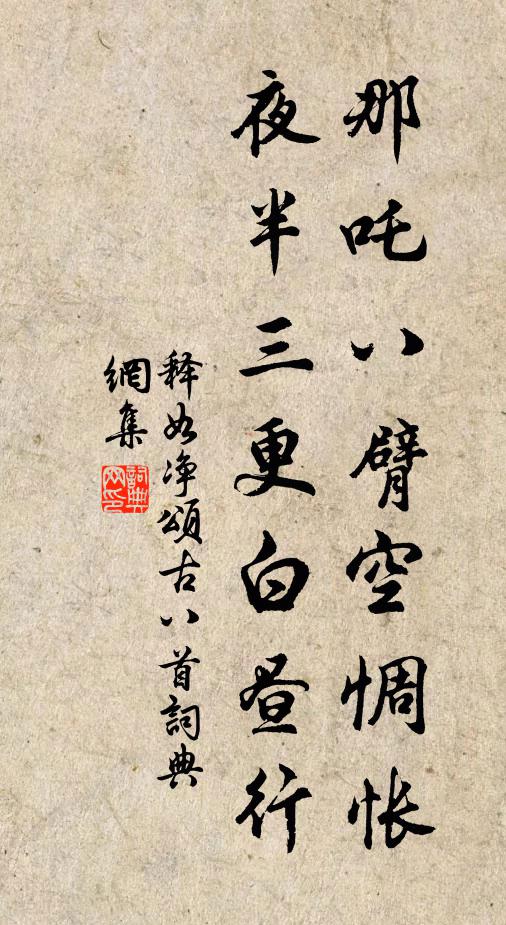 那吒八臂空惆怅
夜半三更白昼行
释如净頌古八首詞典
網集
詞典
网印